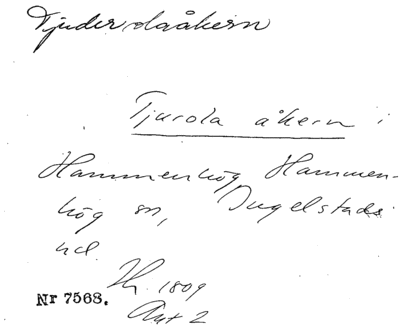 Tjuderolaåkern
Tjurola åkern i
Hammenhög Hammen-
hög sn, Ingelstads
hd.
Nr 7568.
1809
Akt 2